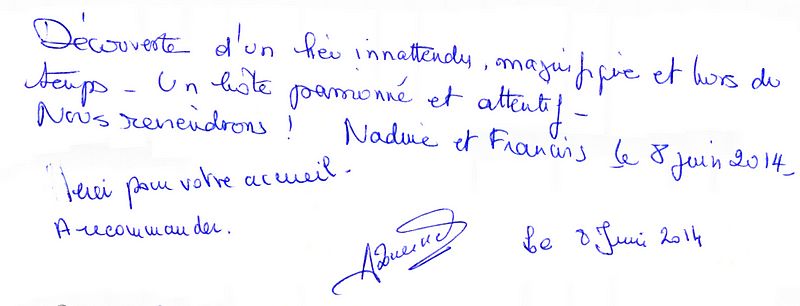 Découverte d'un lieu innattendu, magnifique et hors du
temps - Un hôte passionné et attentif -
Nous reviendrons ! Nadine et Francis le 8 juin 2014 -
Merci pour votre accueil.
A recommander.
Le 8 Juin 2014